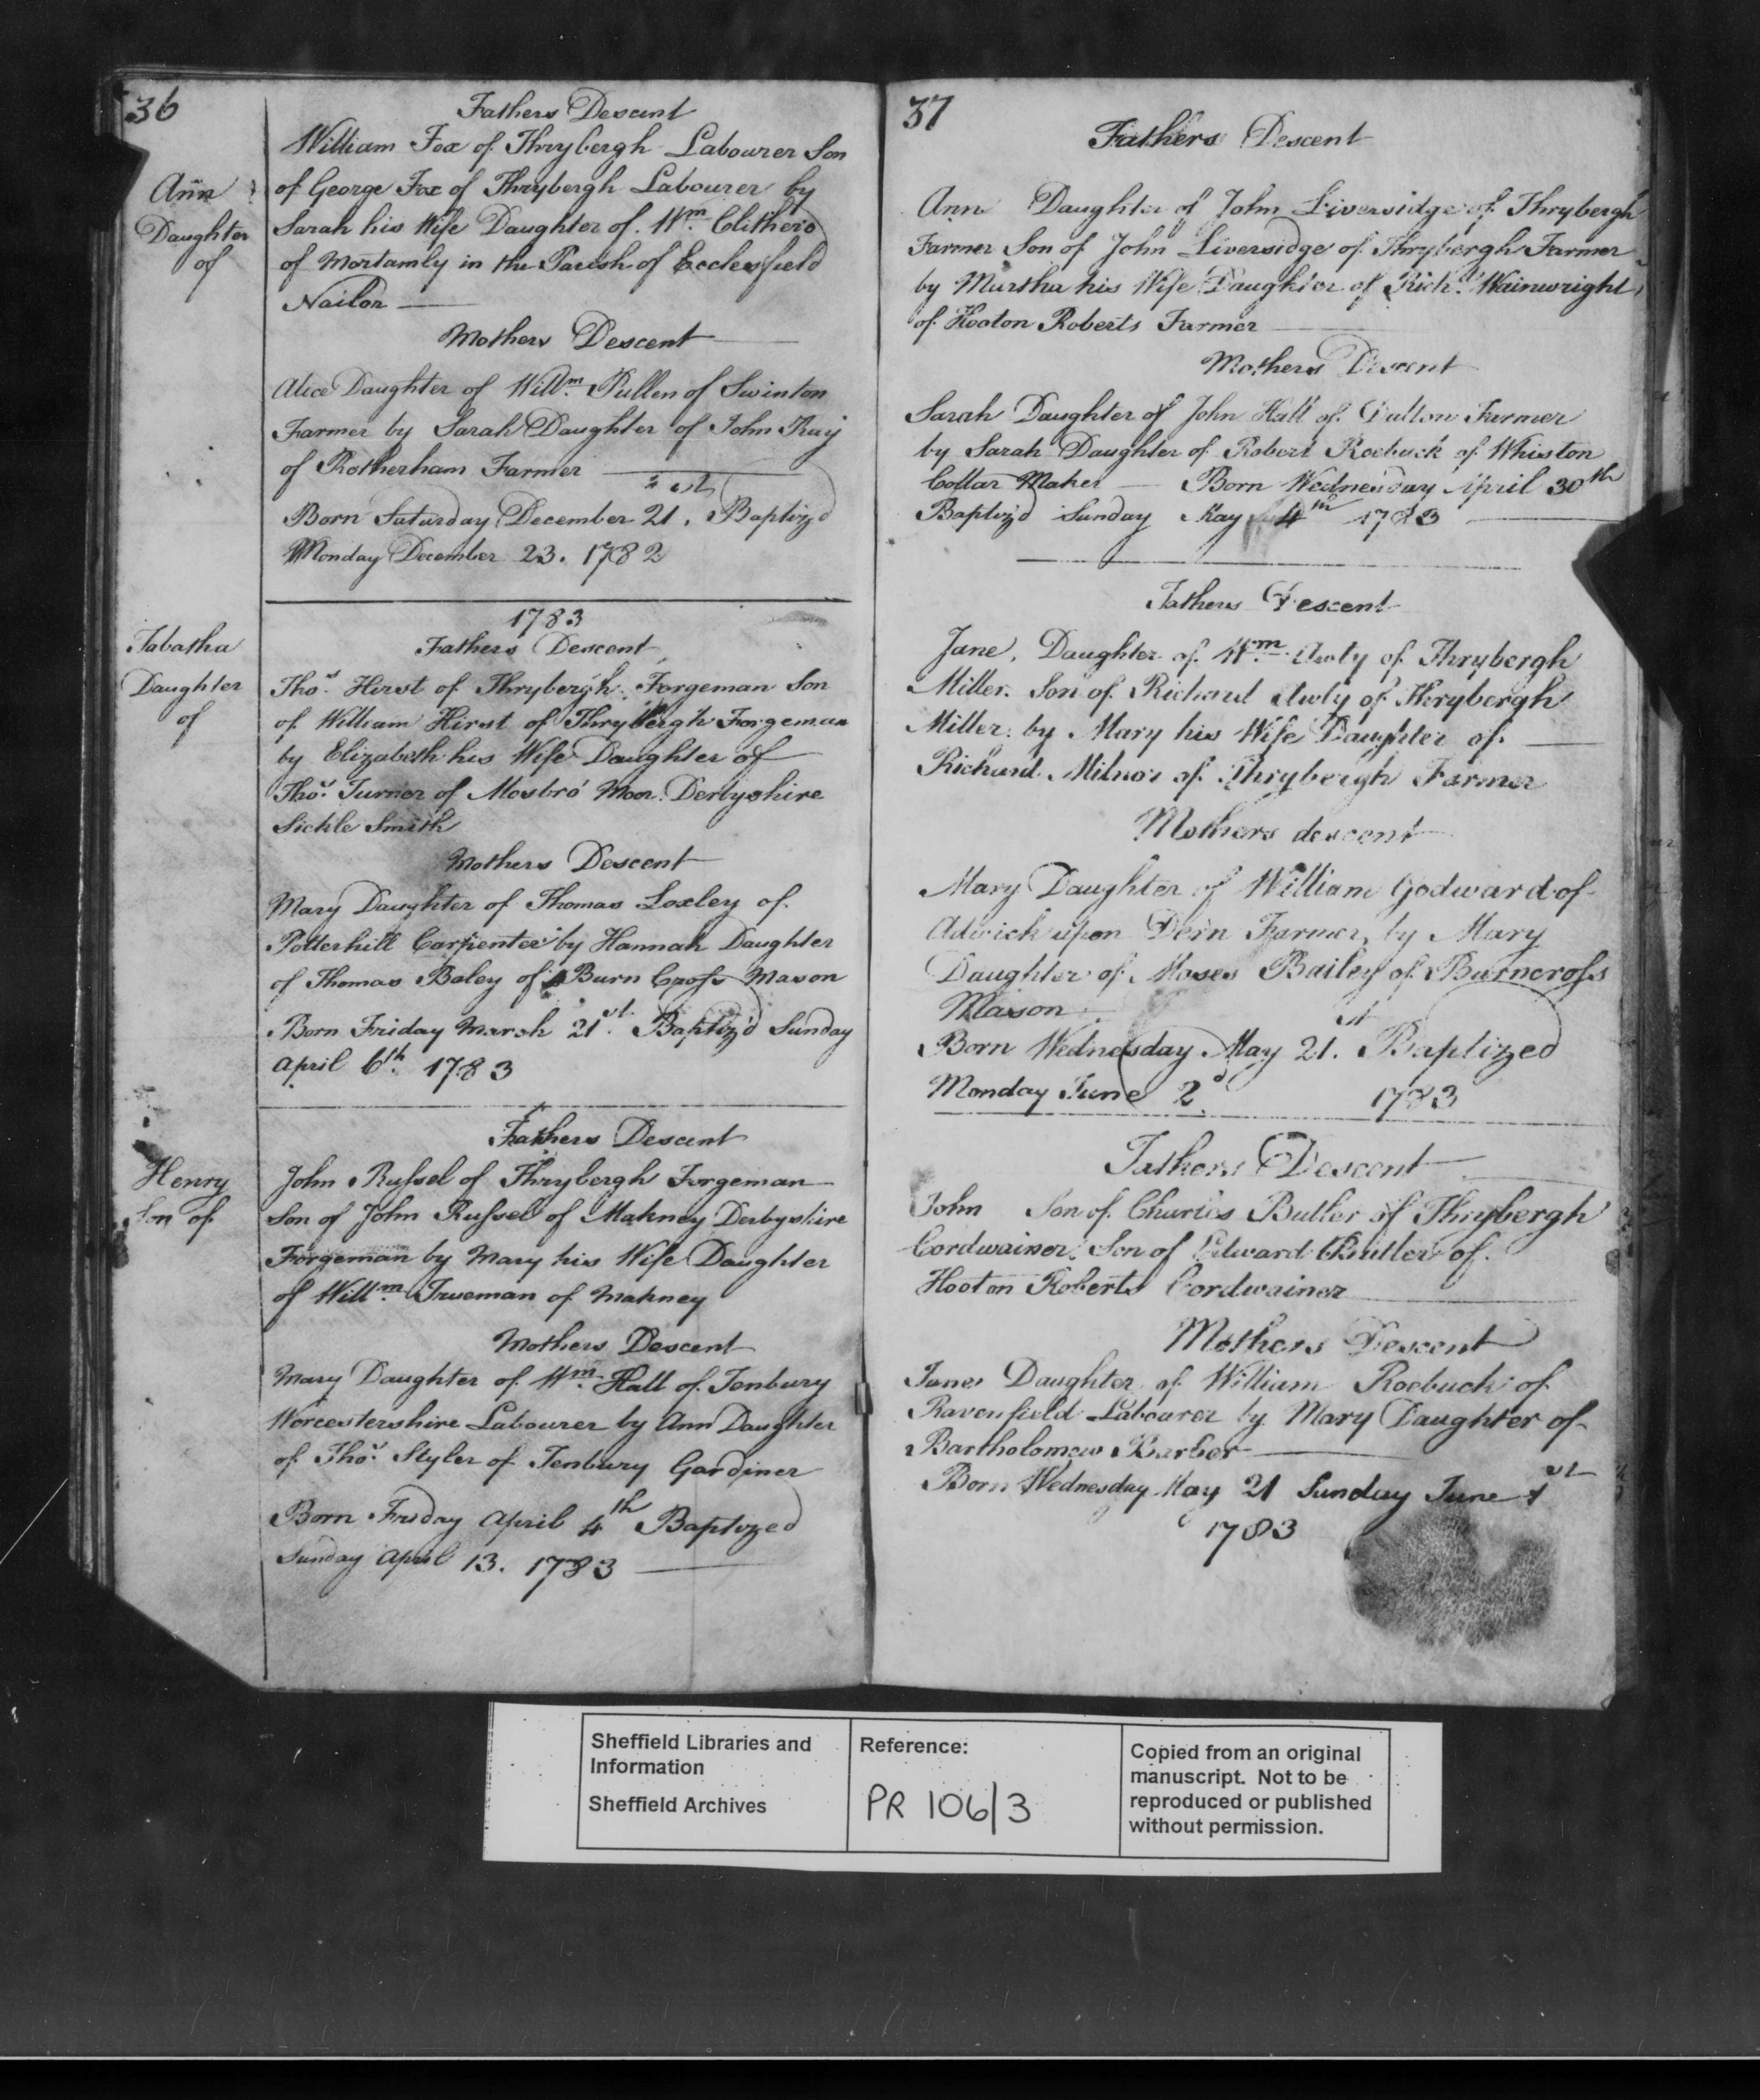 36
Fathers Descent
William Fox of Thrybergh Labourer Son
Ann
of George Fox of Thrybergh Labourer by
Daughter
Sarah his Wife Daughter of Wm. Clithero
of
of Mortamly in the Parish of Ecclesfield
Nailor
Mothers Descent
Alice Daughter of Willm. Pullen of Swinton
Farmer by Sarah Daughter of John Kay
of Rotherham Farmer
Born Saturday December 21st. Baptiz'd
Monday December 23. 1782
1783
Tabatha
Fathers Descent
Daughter
Thos. Hirst of Thrybergh Forgeman Son
of
of William Hirst of Thrybergh Forgeman
by Elizabeth his Wife Daughter of
Thos. Turner of Mosbro' Moor Derbyshire
Sickle Smith
Mothers Descent
Mary Daughter of Thomas Loxley of
Potterhill Carpenter by Hannah Daughter
of Thomas Baley of Burn Cross Mason
Born Friday March 21st. Baptiz'd Sunday
April 6th. 1783
Fathers Descent
Henry
John Russel of Thrybergh Forgeman
Son of
Son of John Russel of Makney Derbyshire
Forgeman by Mary his Wife Daughter
of Willm. Trueman of Makney
Mothers Descent
Mary Daughter of Wm. Hall of Tenbury
Worcestershire Labourer by Ann Daughter
of Thos. Styler of Tenbury Gardiner
Born Friday April 4th Baptized
Sunday April 13. 1783
37
Fathers Descent
Ann Daughter of John Liversidge of Thrybergh
Farmer Son of John Liversidge of Thrybergh Farmer
by Martha his Wife Daughter of Richd. Wainwright
of Hooton Roberts Farmer
Mothers Descent
Sarah Daughter of John Hall of Dalton Farmer
by Sarah Daughter of Robert Roebuck of Whiston
Collar Maker Born Wednesday April 30th
Baptiz'd Sunday May 4th 1783
Fathers Descent
Jane, Daughter of Wm. Awty of Thrybergh
Miller. Son of Richard Awty of Thrybergh
Miller. by Mary his Wife Daughter of
Richard Milnor of Thrybergh Farmer
Mothers descent
Mary Daughter of William Godward of
Adwick upon Dern Farmer, by Mary
Daughter of Moses Bailey of Burncross
Mason
Born Wednesday May 21st. Baptized
Monday June 2d. 1783
Fathers Descent
John Son of Charles Butler of Thrybergh
Cordwainer. Son of Edward Butler of
Hooton Roberts Cordwainer
Mothers Descent
Jane Daughter of William Roebuck of
Ravenfield Labourer by Mary Daughter of
Bartholomew Barber
Born Wednesday May 21 Sunday June 1st
1783
Sheffield Libraries and
Information
Sheffield Archives
Reference:
PR 106/3
Copied from an original
manuscript. Not to be
reproduced or published
without permission.